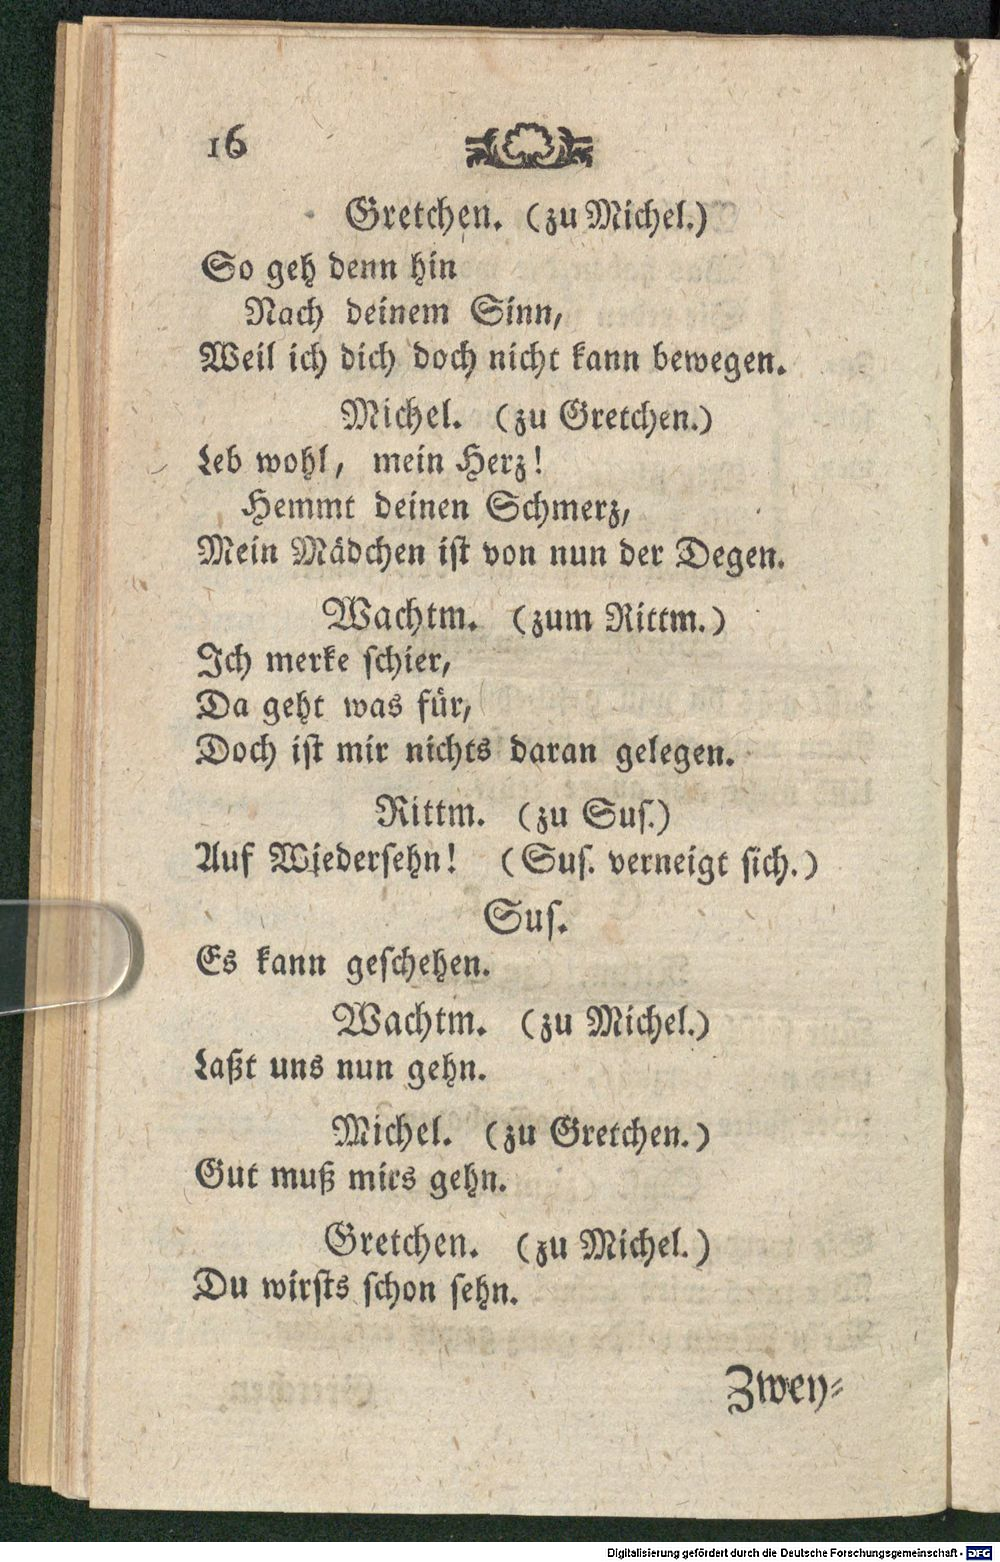 16
Gretchen. (zu Michel.)
So geh denn hin
Nach deinem Sinn,
Weil ich dich doch nicht kann bewegen.
Michel. (zu Gretchen.)
Leb wohl, mein Herz!
Hemmt deinen Schmerz,
Mein Mädchen ist von nun der Degen.
Wachtm. (zum Rittm.)
Ich merke schier,
Da geht was für,
Doch ist mir nichts daran gelegen.
Rittm. (zu Sus.)
Auf Wiedersehn! (Sus. verneigt sich.)
Sus.
Es kann geschehen.
Wachtm. (zu Michel.)
Laßt uns nun gehn.
Michel. (zu Gretchen.)
Gut muß mirs gehn.
Gretchen. (zu Michel.)
Du wirsts schon sehn.
Zwey-
Digitalisierung gefördert durch die Deutsche Forschungsgemeinschaft - DFG